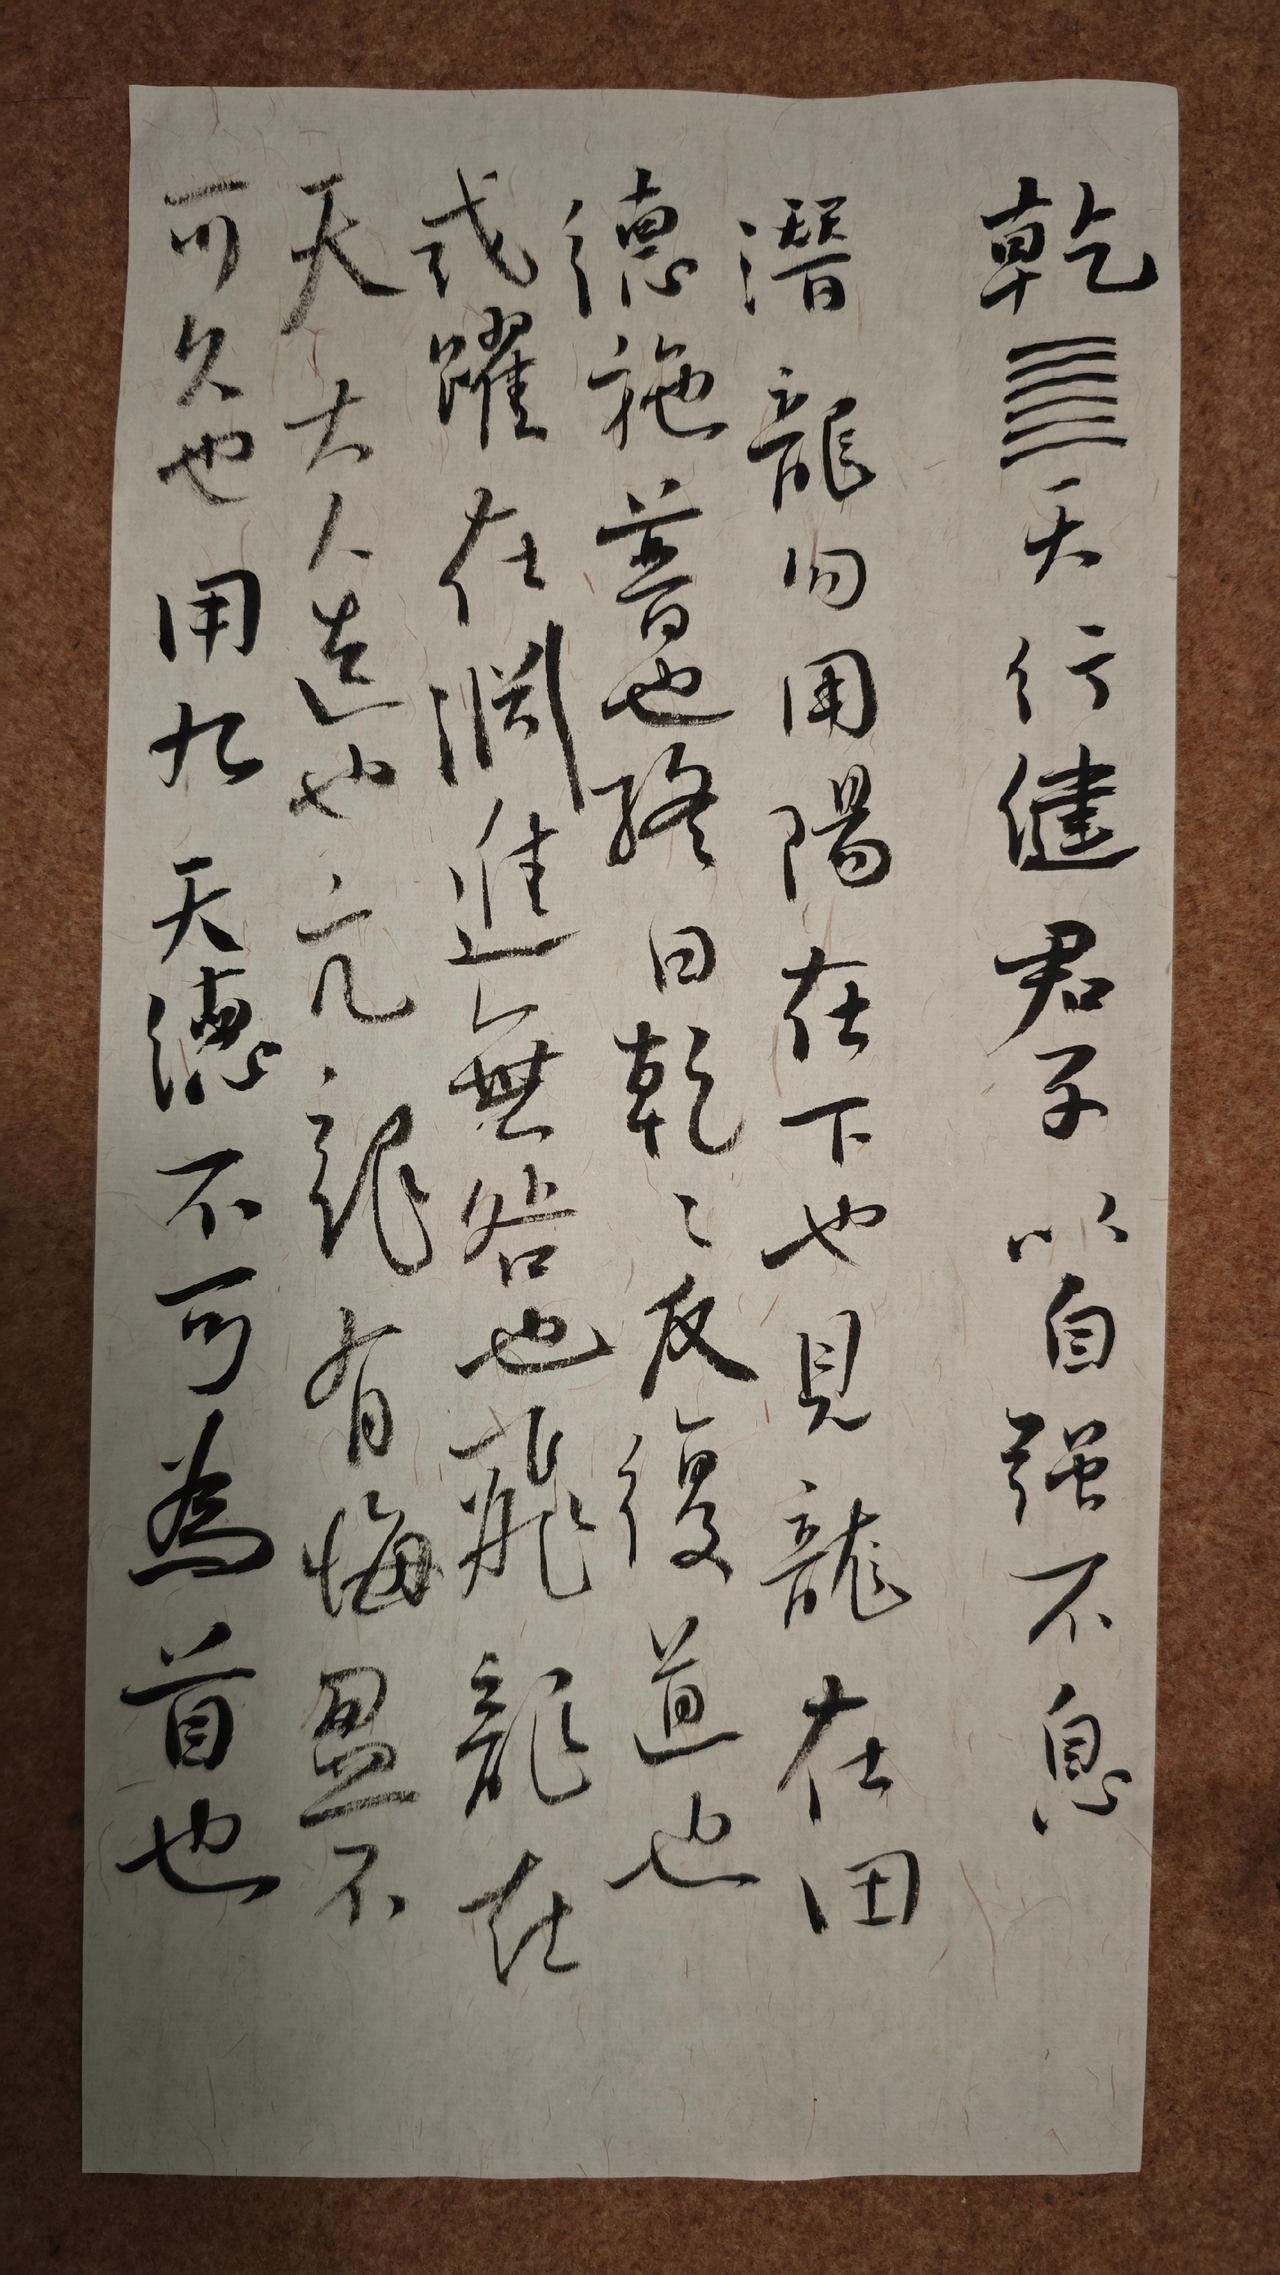 乾䷀天行健君子以自强不息
潛龍勿用陽在下也見龍在田
德施普也終日乾〻反復道也
或躍在淵進無咎也飛龍在
天大人造也亢龍有悔盈不
可久也用九天德不可為首也